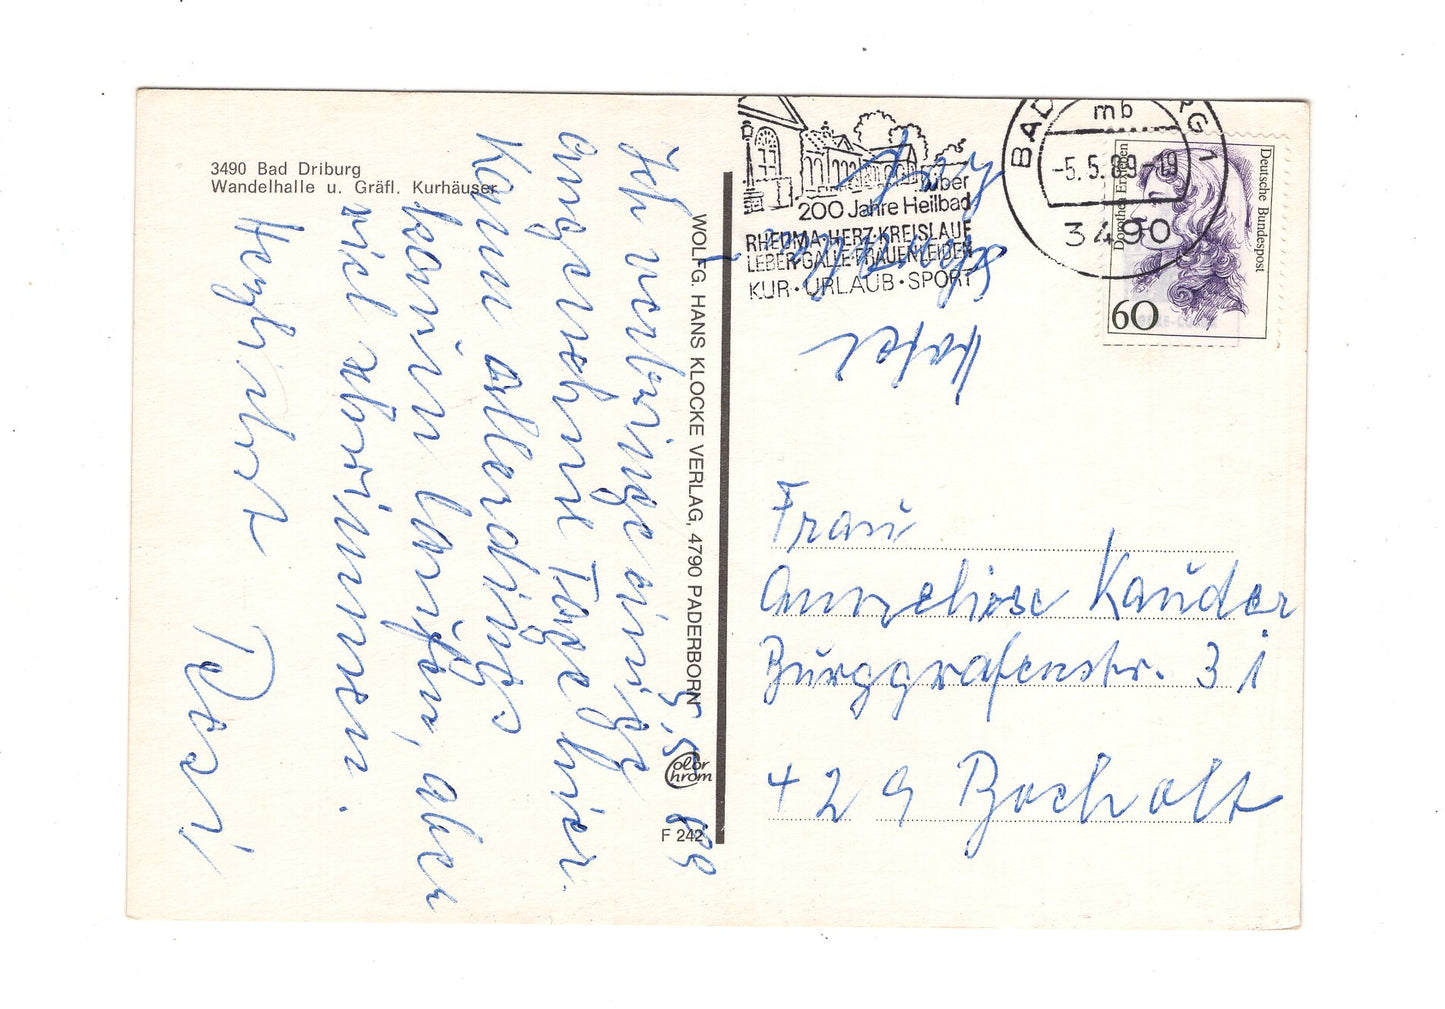 3490 Bad Driburg
Wandelhalle u. Gräfl. Kurhäuser
5.5.89
Ich verbringe einige
angenehme Tage hier.
Kann allerdings
kaum laufen, aber
viel schwimmen.
Herzlichst
Rosi
WOLFG. HANS KLOCKE VERLAG, 4790 PADERBORN
Color
Chrom
F 242
über
200 Jahre Heilbad
RHEUMA·HERZ·KREISLAUF
LEBER·GALLE·FRAUENLEIDEN
KUR·URLAUB·SPORT
BAD
RG 1
mb
-5.5.89-19
3490
Deutsche Bundespost
Dorothea Erxleben
60
Frau
Anneliese Kauder
Burggrafenstr. 31
429 Bocholt